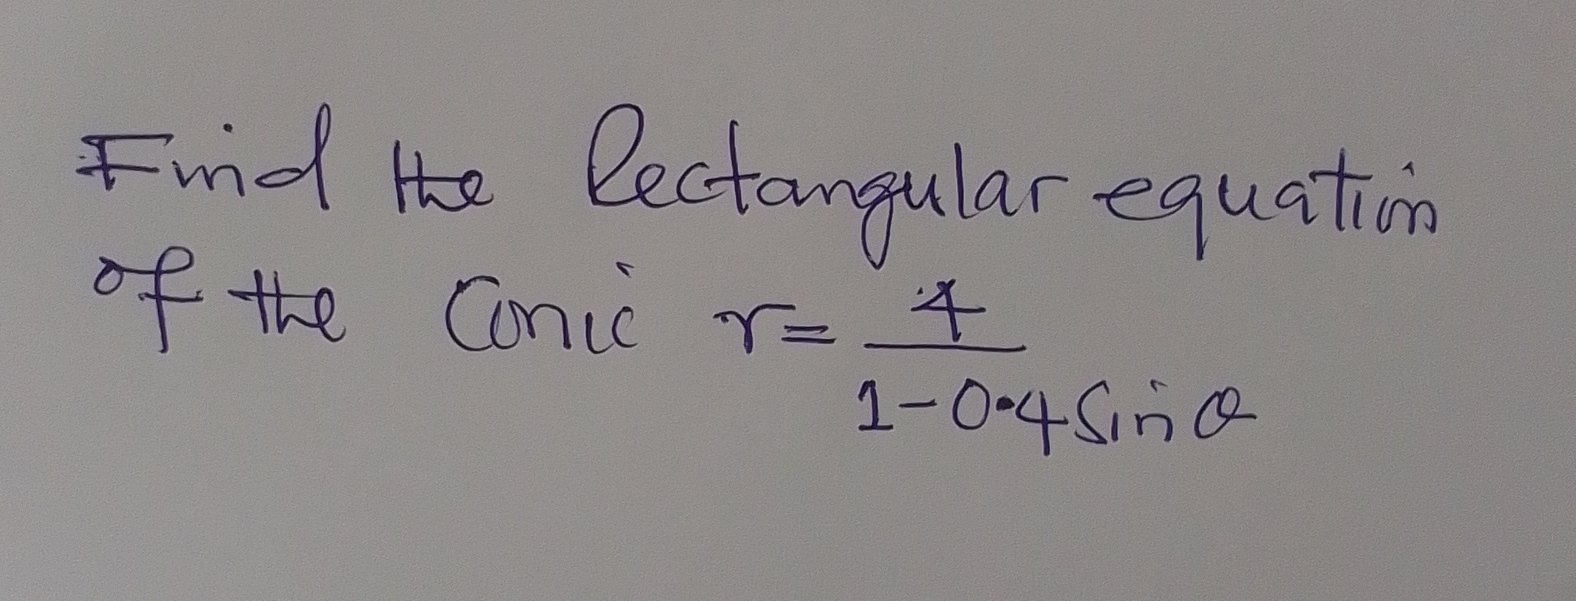 Find the Rectangular equation
of the Conic r= 4
1-0.4 Sin θ